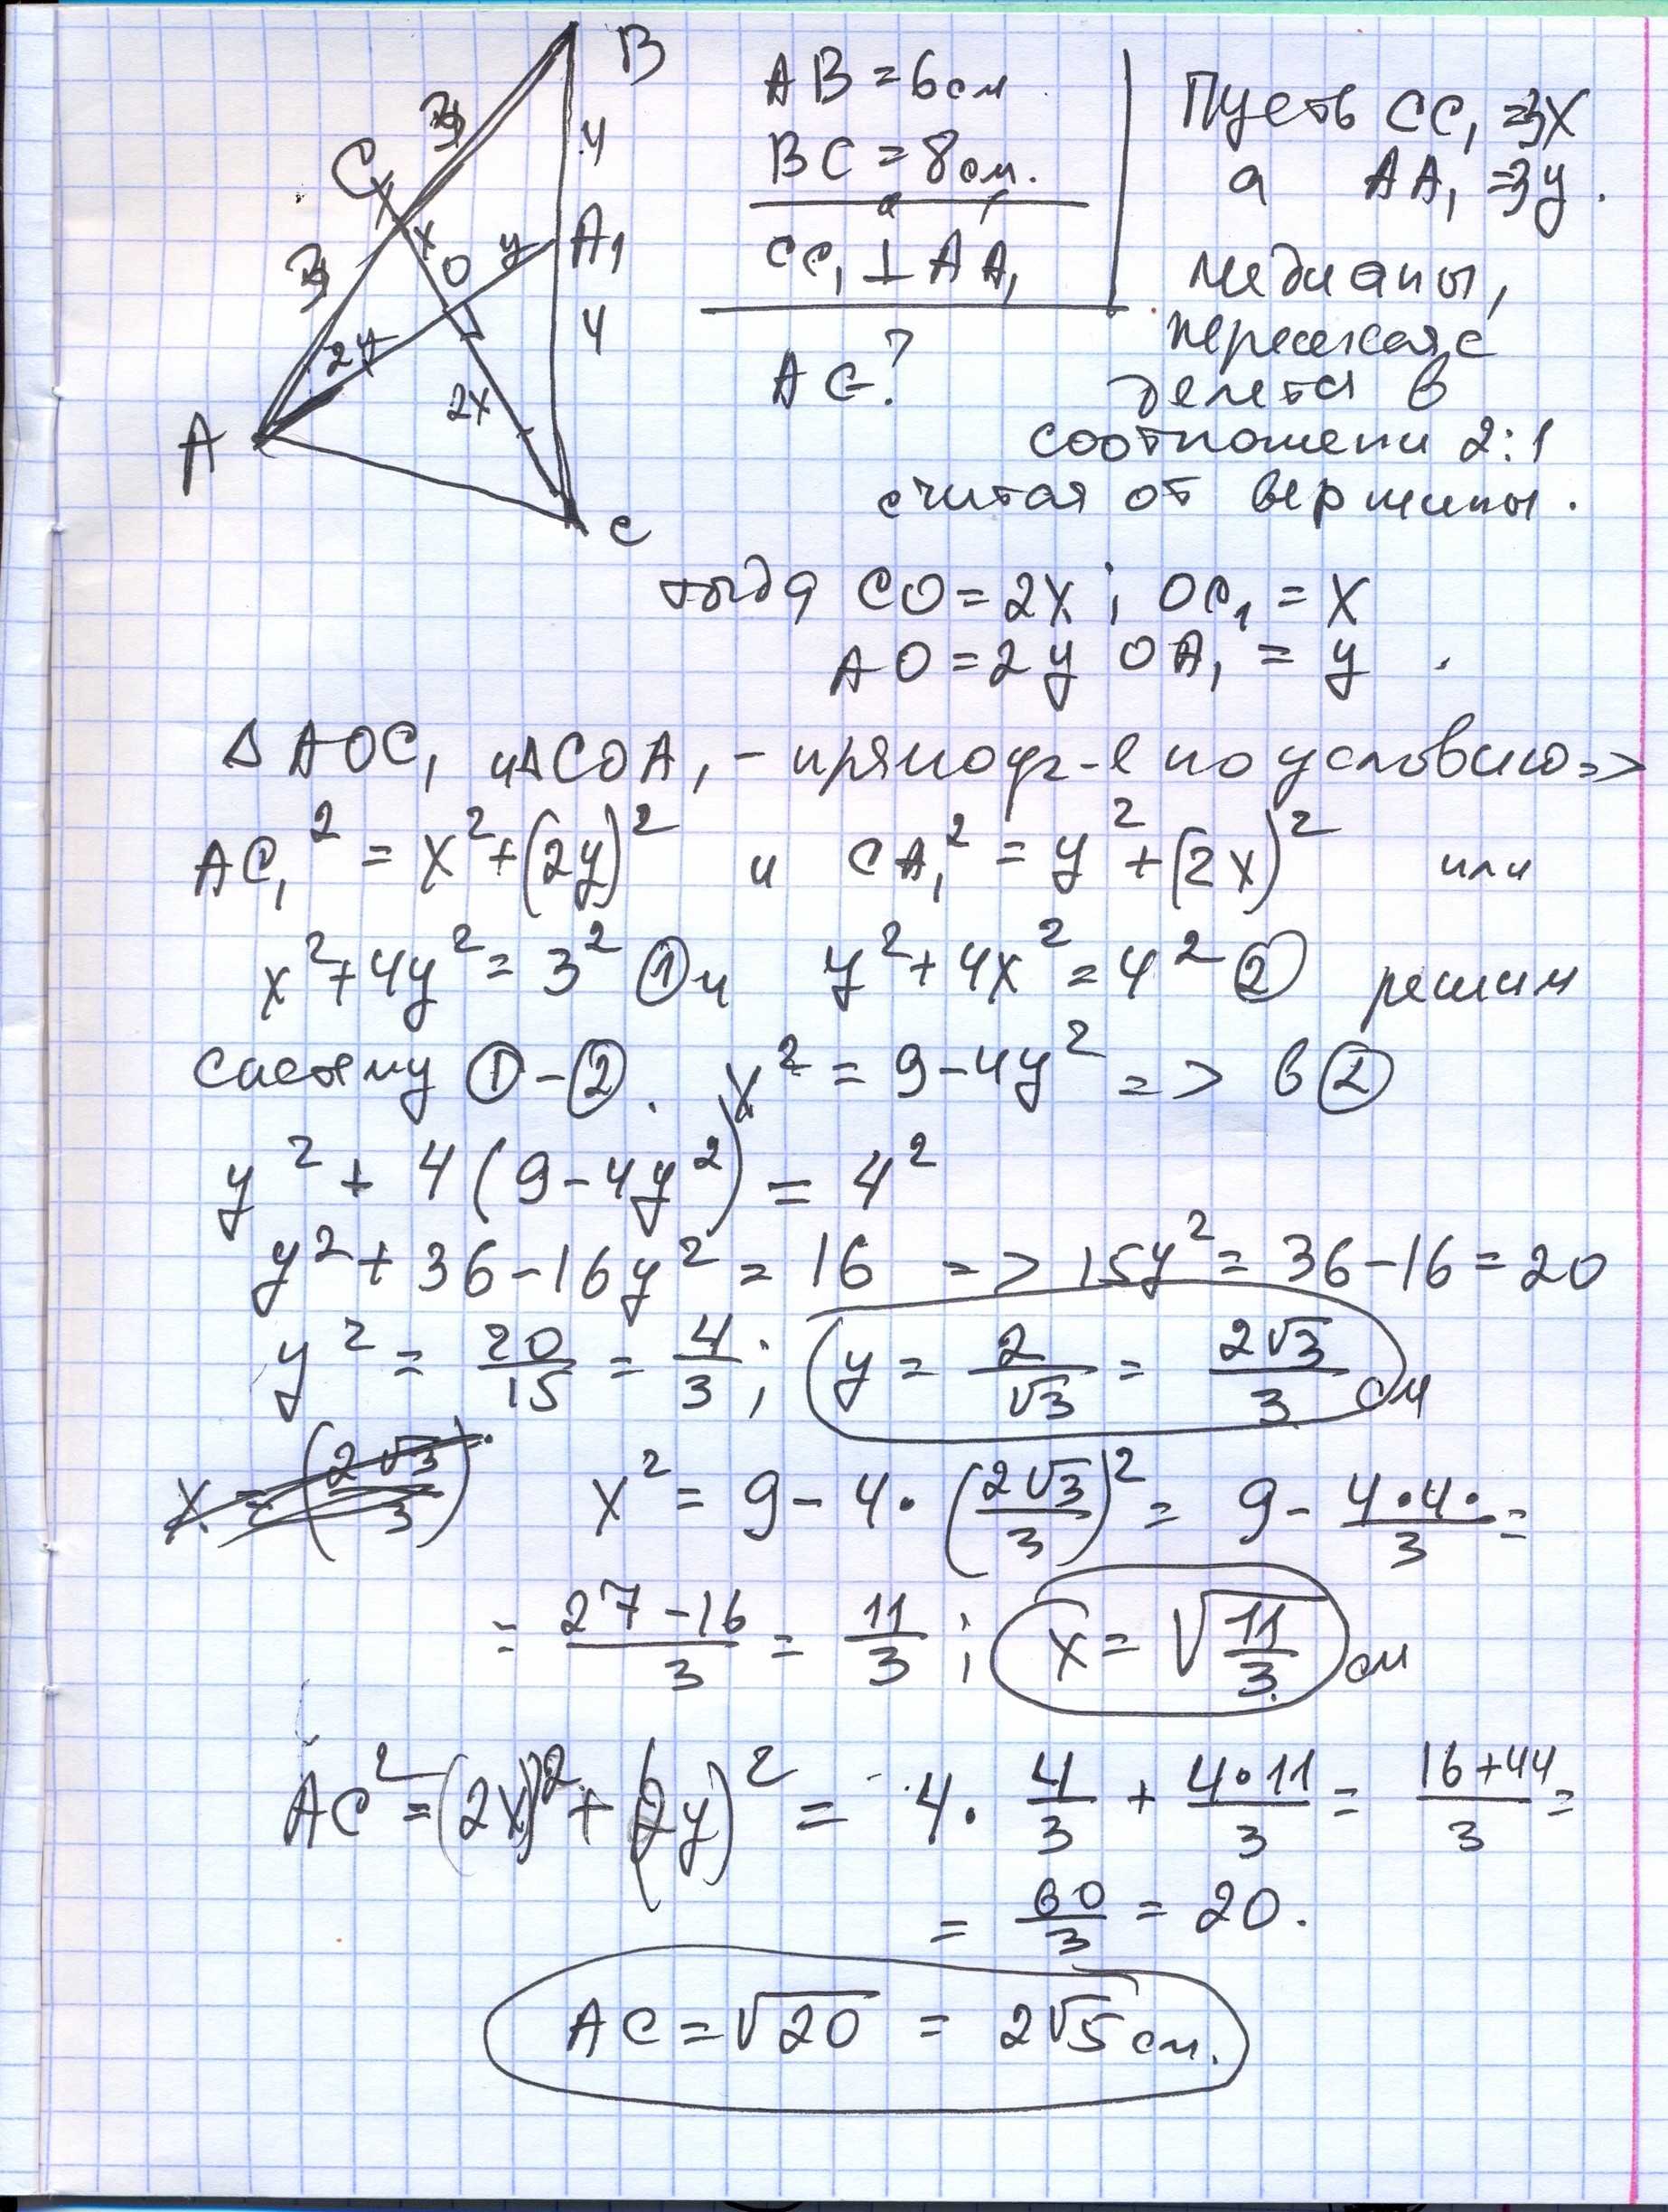 B
AB = 6 см
BC = 8 см.
CC₁ ⊥ AA₁
AC-?
Пусть CC₁ = 3x
а AA₁ = 3y.
медианы,
делется в
соотношени 2:1
считая от вершины.
3
C₁
4
x
O
y
A₁
3
4
2y
2x
A
C
тогда CO = 2x ; OC₁ = x
AO = 2y OA₁ = y .
Δ AOC₁ и Δ COA₁ - прямоуг-е по условию =>
AC₁² = x² + (2y)² и CA₁² = y² + (2x)² или
x² + 4y² = 3² ① и y² + 4x² = 4² ② решим
систему ① - ② . x² = 9 - 4y² => в ②
y² + 4 (9 - 4y²) = 4²
y² + 36 - 16y² = 16 => 15y² = 36 - 16 = 20
y² = 20/15 = 4/3 ; y = 2/√3 = 2√3/3 см
x = (2√3/3) x² = 9 - 4 · (2√3/3)² = 9 - 4·4·/3 =
= 27 - 16/3 = 11/3 ; x = √11/3 см
AC² = (2x)² + (2y)² = 4 · 4/3 + 4·11/3 = 16 + 44/3 =
= 60/3 = 20.
AC = √20 = 2√5 см.